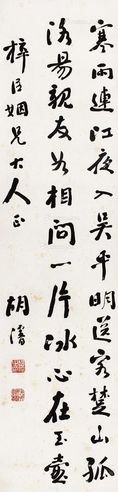 寒雨連江夜入吳平明送客楚山孤
洛陽親友如相問一片冰心在玉壺
梓臣姻兄大人正
胡濬